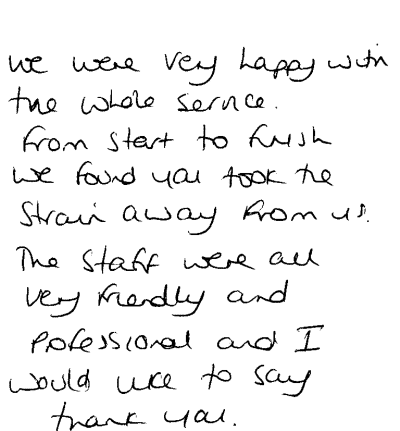 we were very happy with
the whole service.
From start to finish
we found you took the
strain away from us.
The staff were all
very friendly and
professional and I
would like to say
thank you.